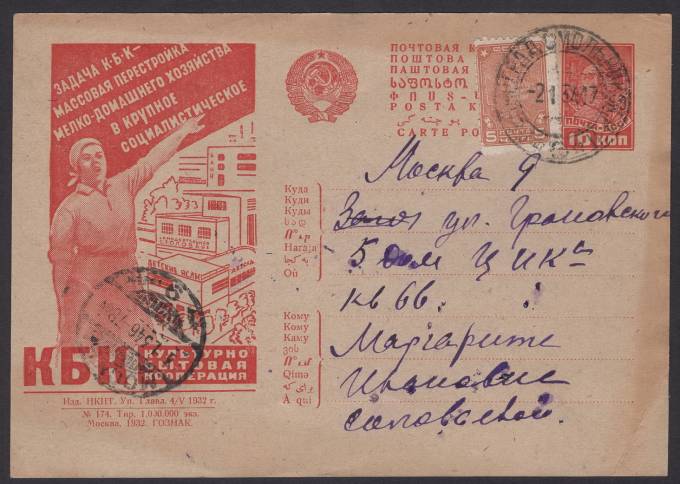 ЗАДАЧА К·Б·К—
МАССОВАЯ ПЕРЕСТРОЙКА
МЕЛКО-ДОМАШНЕГО ХОЗЯЙСТВА
В КРУПНОЕ
СОЦИАЛИСТИЧЕСКОЕ
ДЕТСКИЕ ЯСЛИ
КБК
КУЛЬТУРНО
БЫТОВАЯ
КООПЕРАЦИЯ
Изд. НКПТ. Уп. Главл. 4/V 1932 г.
№ 174. Тир. 1.000.000 экз.
Москва. 1932. ГОЗНАК.
ПОЧТОВАЯ К
ПОШТОВА
ПАШТОВАЯ
POSTA K
CARTE PO
5
10 КОП
Куда
Куди
Куды
Haraja
Où
Кому
Кому
Каму
Qimə
À qui
Москва 9
ул. Грановского
5 дом ЦИКа
кв 66.
Маргарите
Ивановне